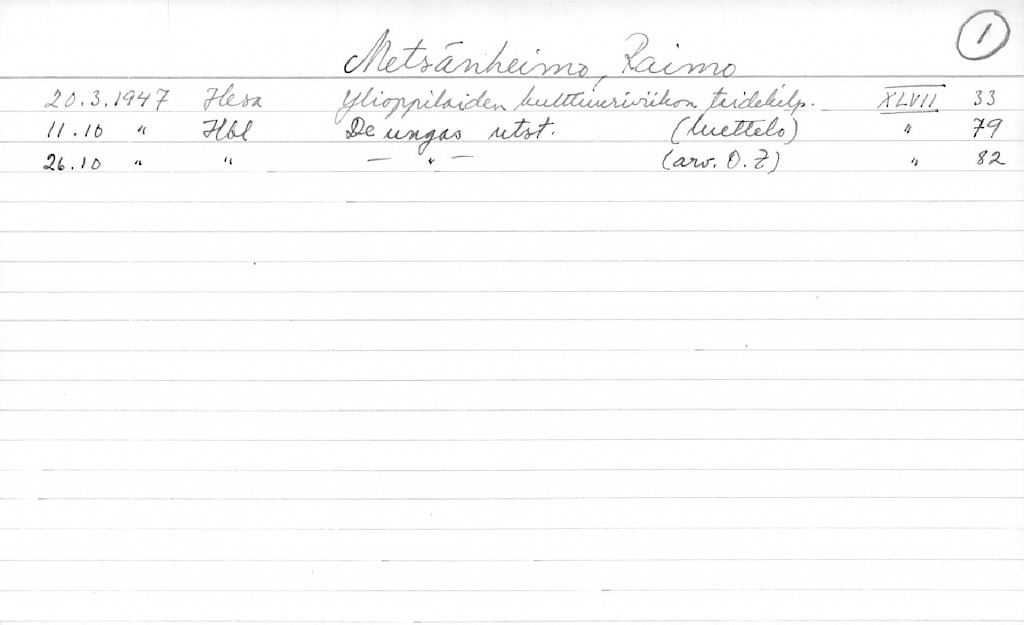 1
Metsänheimo, Raimo
20.3.1947 Hesa Ylioppilaiden kulttuuriviikon taidekilp. XLVII 33
11.10 " Hbl De ungas utst. (luettelo) " 79
26.10 " " — " — (arv. O.Z) " 82